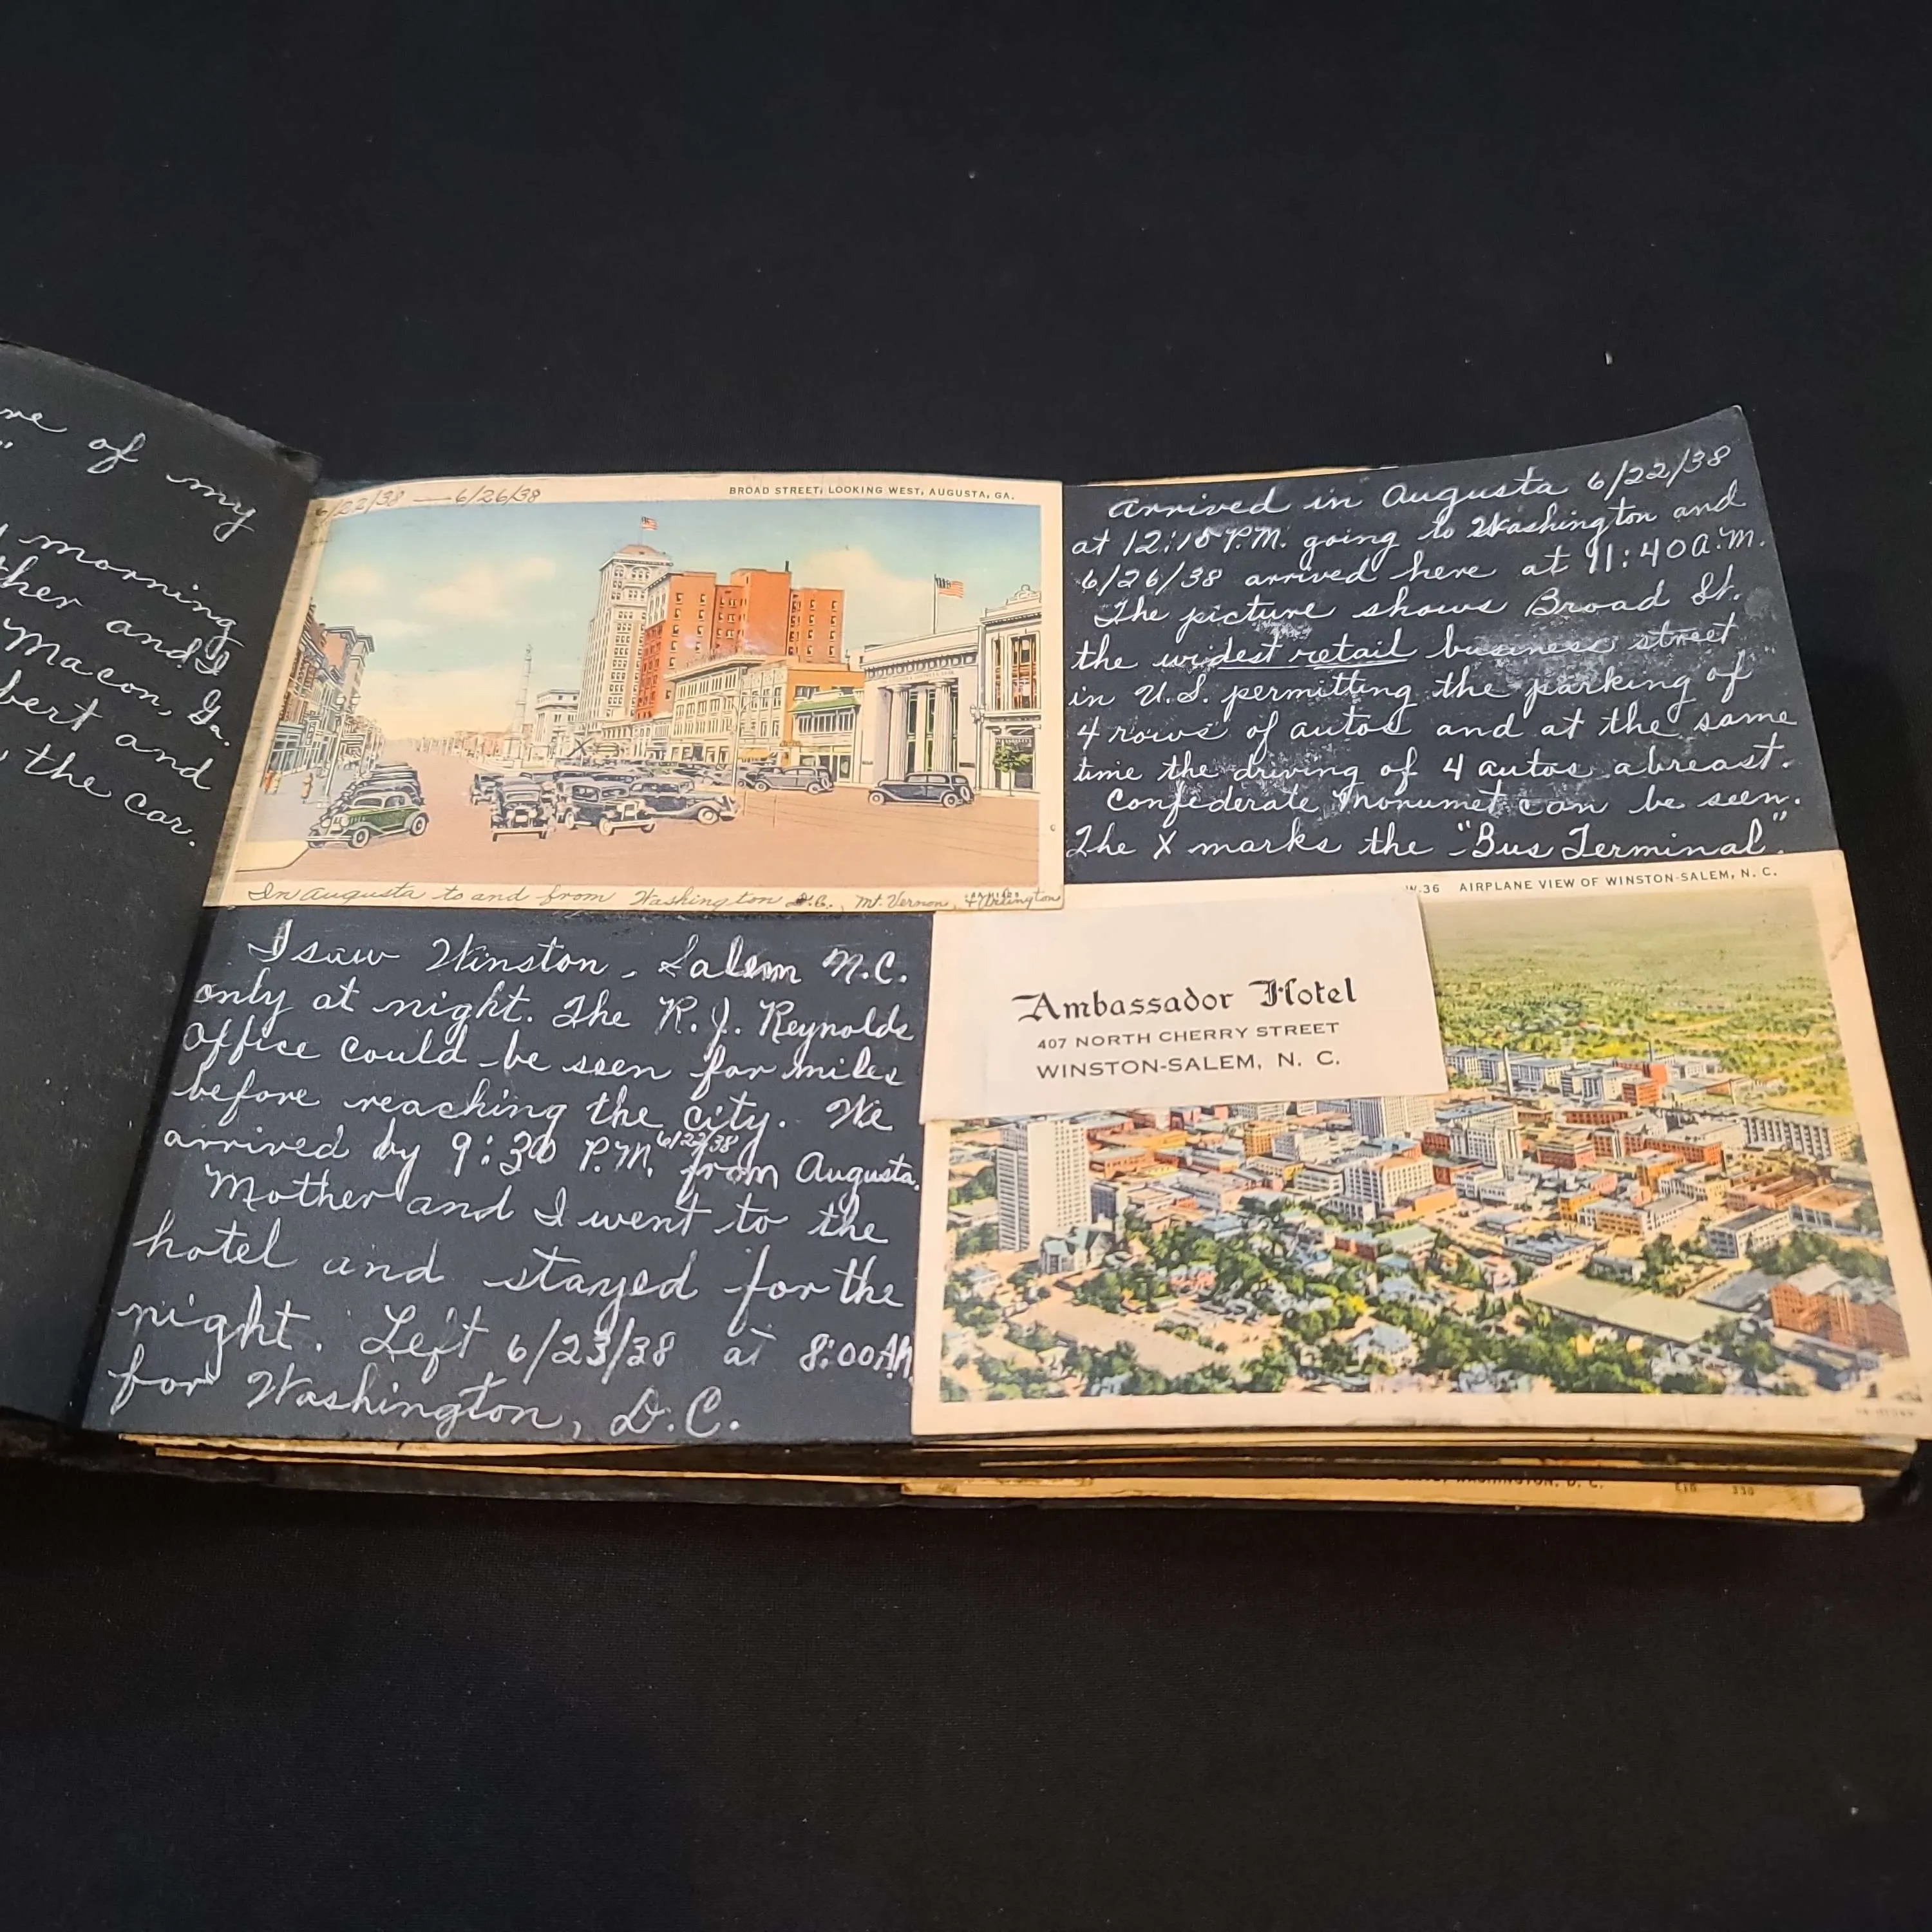 re of my
"
morning
ther and I
Macon, Ga.
bert and
the car.
6/22/38 — 6/26/38
BROAD STREET, LOOKING WEST, AUGUSTA, GA.
In Augusta to and from Washington D.C., Mt. Vernon, & Arlington
arrived in Augusta 6/22/38
at 12:15 P.M. going to Washington and
6/26/38 arrived here at 11:40 A.M.
The picture shows Broad St.
the widest retail business street
in U.S. permitting the parking of
4 rows of autos and at the same
time the driving of 4 autos abreast.
Confederate Monumet can be seen.
The X marks the "Bus Terminal".
I saw Winston-Salem N.C.
only at night. The R. J. Reynolds
Office could be seen for miles
before reaching the city. We
arrived by 9:30 P.M. 6/22/38 from Augusta.
Mother and I went to the
hotel and stayed for the
night. Left 6/23/38 at 8:00 AM
for Washington, D.C.
W.36 AIRPLANE VIEW OF WINSTON-SALEM, N. C.
Ambassador Hotel
407 NORTH CHERRY STREET
WINSTON-SALEM, N. C.
WASHINGTON, D. C.
E10 330